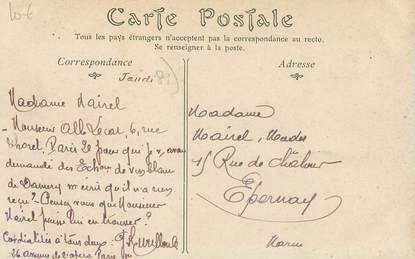 10€
Carte Postale
Tous les pays étrangers n'acceptent pas la correspondance au recto.
Se renseigner à la poste.
Correspondance
Adresse
Jeudi
Madame Mairel
Monsieur 6, rue
Paris 20 pour qui je
demandé des de vin blanc
de Damery m'écrit qu'il n'a rien
reçu? Pensez vous que Monsieur
Mairel puisse lui en trouver?
Cordialités à tous deux.
26 avenue de l'opéra Paris
Madame
Mairel, Modes
15 Rue de Châlons
Epernay
Marne